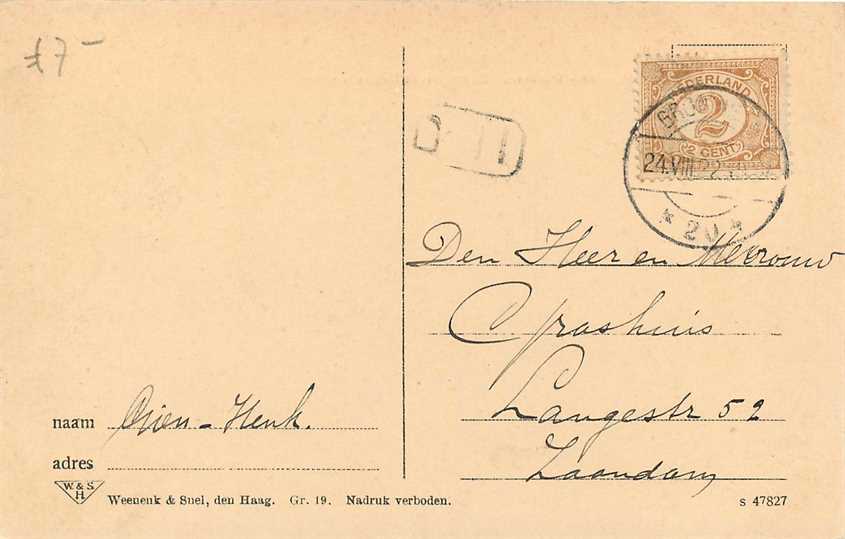 f7-
NEDERLAND
2
2 CENT
24.VIII.22
Den Heer en Mevrouw
C Grashuis
Langestr 52
Zaandam
naam Henk.
adres
W. & S.
H
Weenenk & Snel, den Haag. Gr. 19. Nadruk verboden.
S 47827